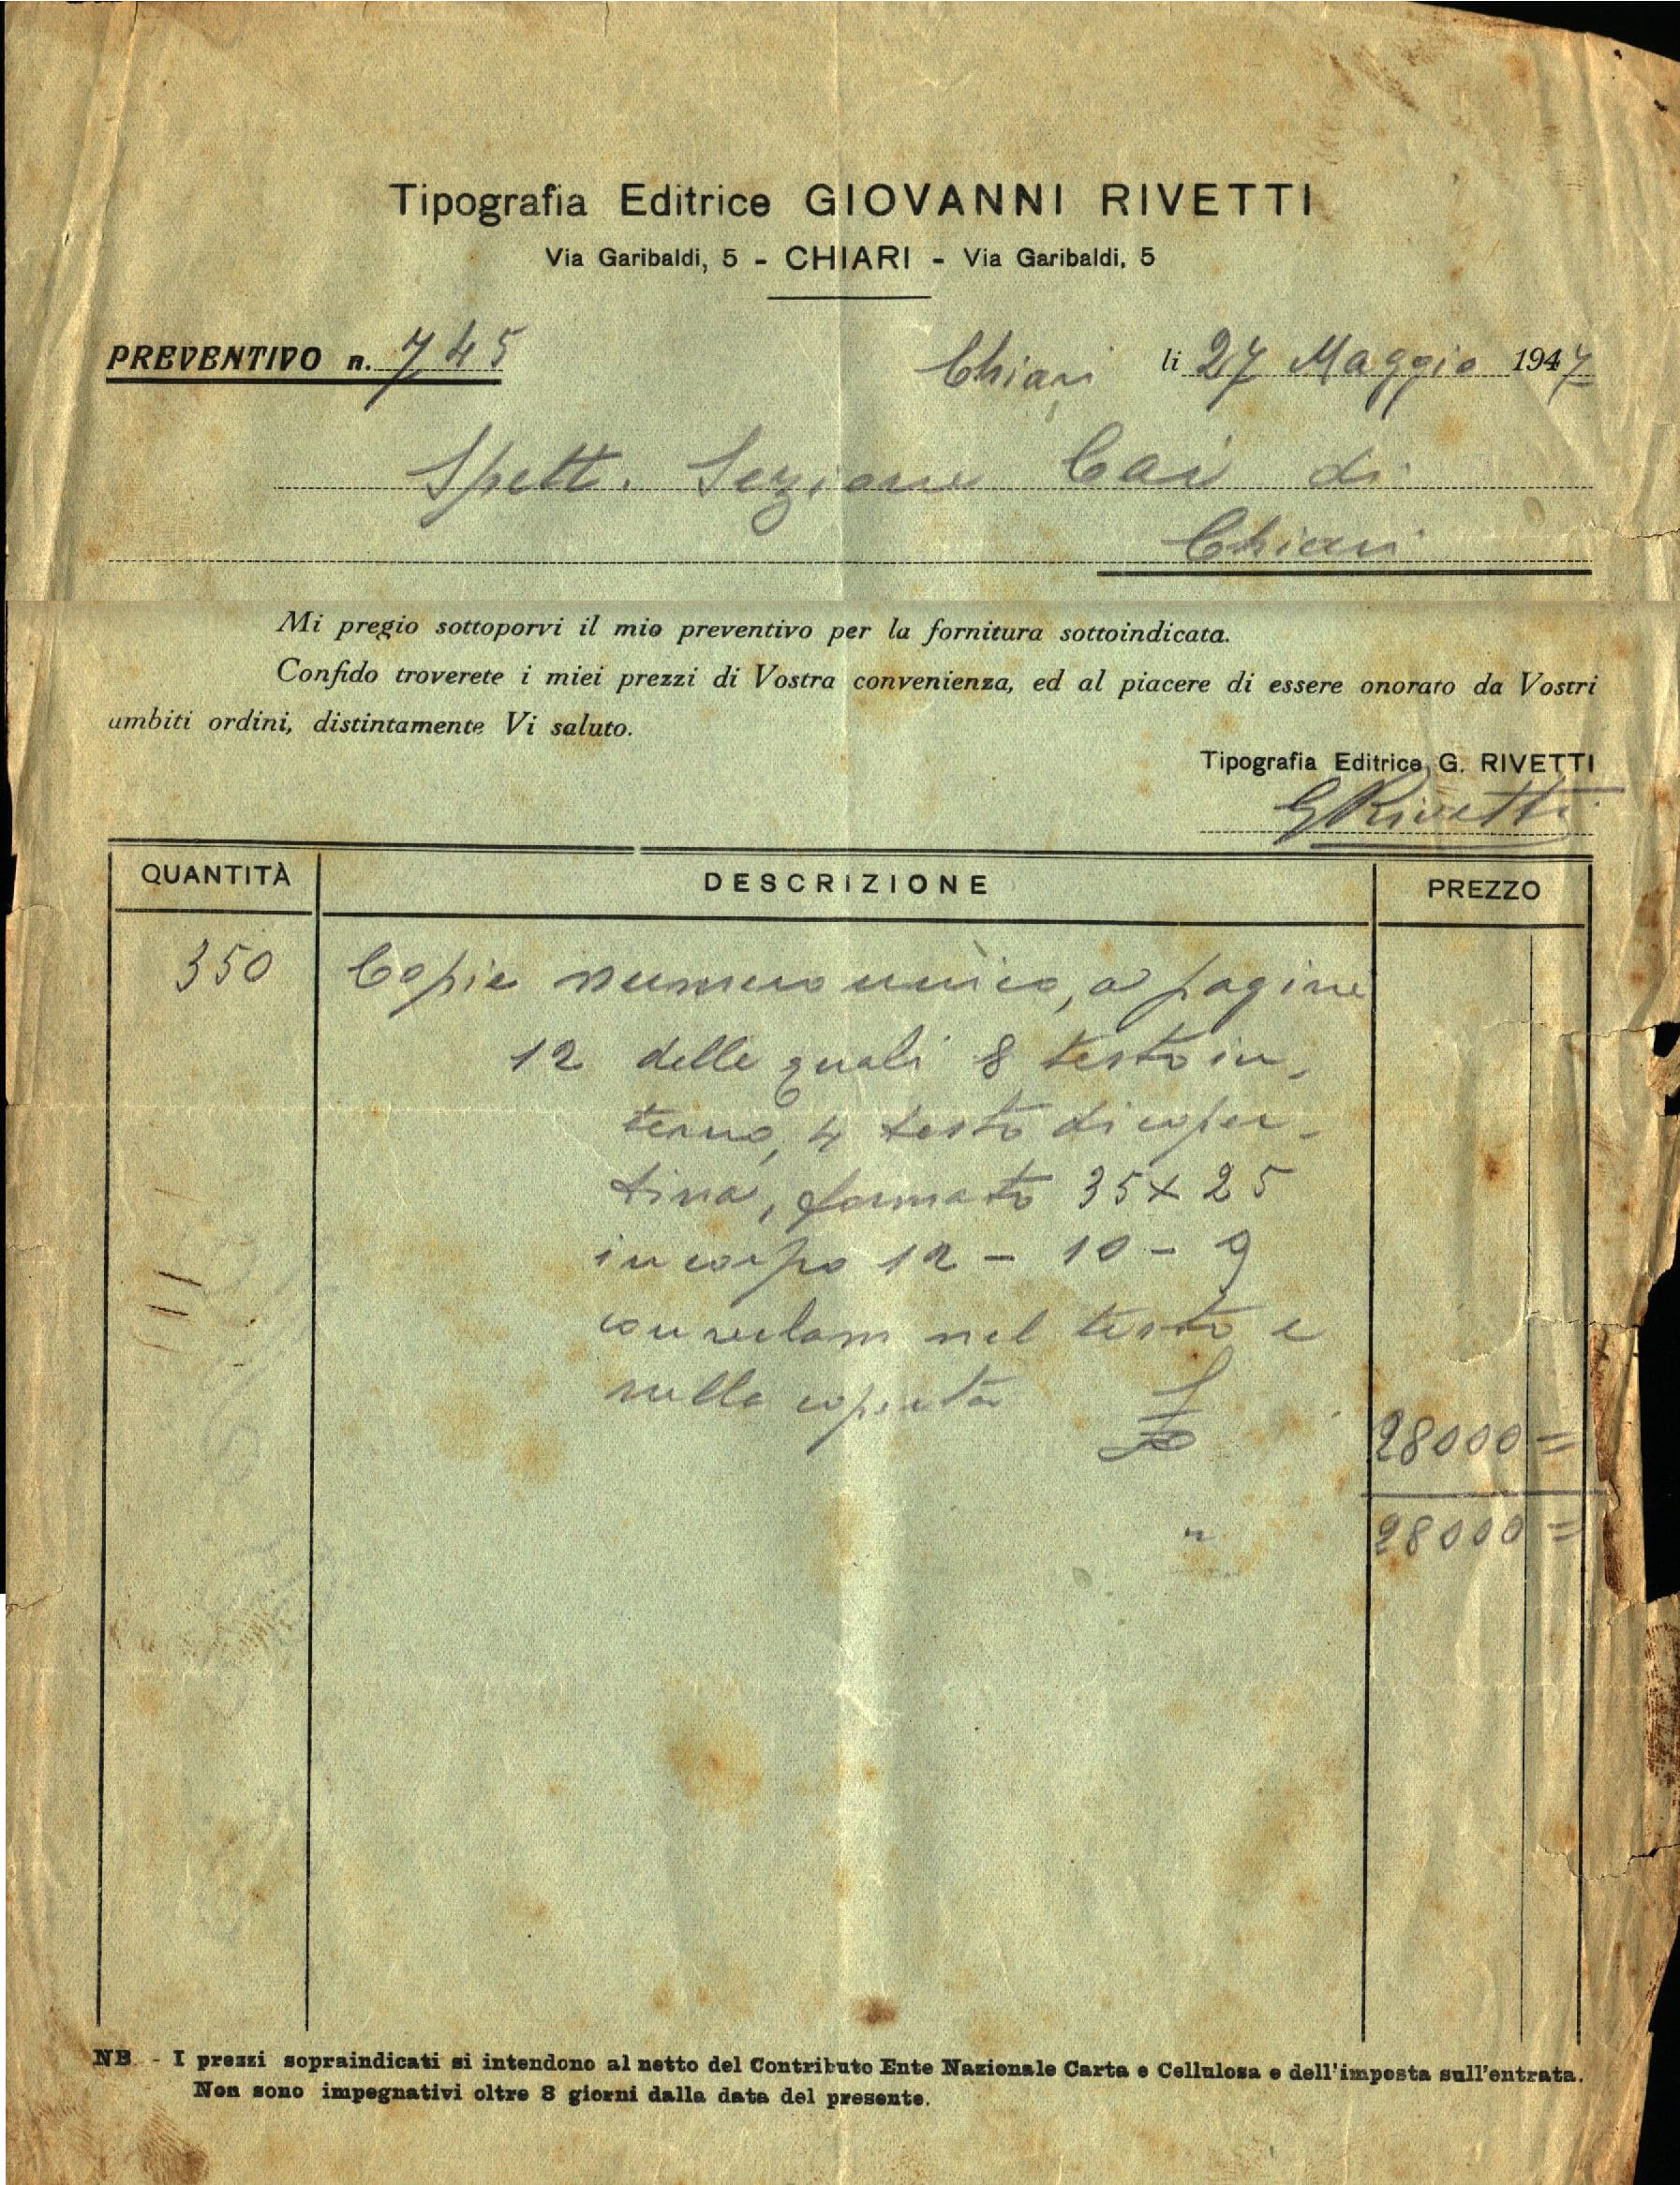 Tipografia Editrice GIOVANNI RIVETTI
Via Garibaldi, 5 - CHIARI - Via Garibaldi, 5
PREVENTIVO n. 745
Chiari li 27 Maggio 1947
Spett. Sezione Cai di
Chiari
Mi pregio sottoporvi il mio preventivo per la fornitura sottoindicata.
Confido troverete i miei prezzi di Vostra convenienza, ed al piacere di essere onorato da Vostri
ambiti ordini, distintamente Vi saluto.
Tipografia Editrice G. RIVETTI
G Rivetti
QUANTITÀ DESCRIZIONE PREZZO
350 Copie numero unico, a pagine
12 delle quali 8 testo in-
terno, 4 testo di coper-
tina, formato 35x25
in corpo 12 - 10 - 9
nel testo e
sulla coperta £ 28000=
" 28000=
NB - I prezzi sopraindicati si intendono al netto del Contributo Ente Nazionale Carta e Cellulosa e dell'imposta sull'entrata.
Non sono impegnativi oltre 8 giorni dalla data del presente.